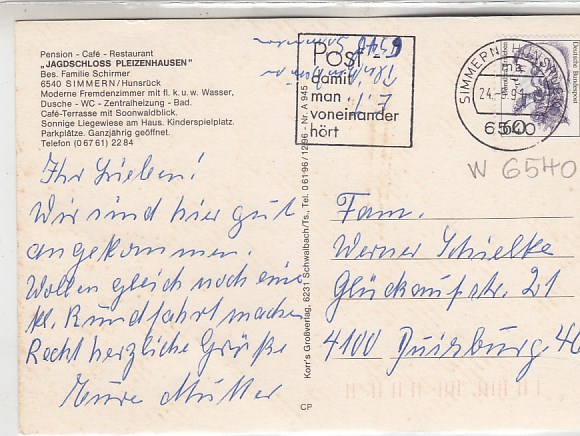 Pension - Café - Restaurant
„JAGDSCHLOSS PLEIZENHAUSEN"
Bes. Familie Schirmer
6540 SIMMERN/Hunsrück
Moderne Fremdenzimmer mit fl. k. u. w. Wasser,
Dusche - WC - Zentralheizung - Bad.
Café-Terrasse mit Soonwaldblick.
Sonnige Liegewiese am Haus. Kinderspielplatz.
Parkplätze. Ganzjährig geöffnet.
Telefon (0 67 61) 22 84
Ihr Lieben!
Wir sind hier gut
angekommen.
Wollen gleich noch eine
kl. Rundfahrt machen
Recht herzliche Grüße
Eure Mutter
Korr's Großverlag, 6231 Schwalbach/Ts., Tel. 0 61 96 / 12 96 - Nr. A 945
CP
POST -
damit
man
voneinander
hört
6540
SIMMERN, HUNSRÜCK
24.-8.91
6540
Deutsche Bundespost
W 6540
Fam.
Werner Schielke
Glückaufstr. 21
4100 Duisburg 46